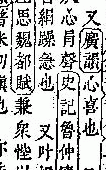 又廣韻心喜也
心肩聲史記魯仲
躁急也　又叶
思魏都賦兼衆